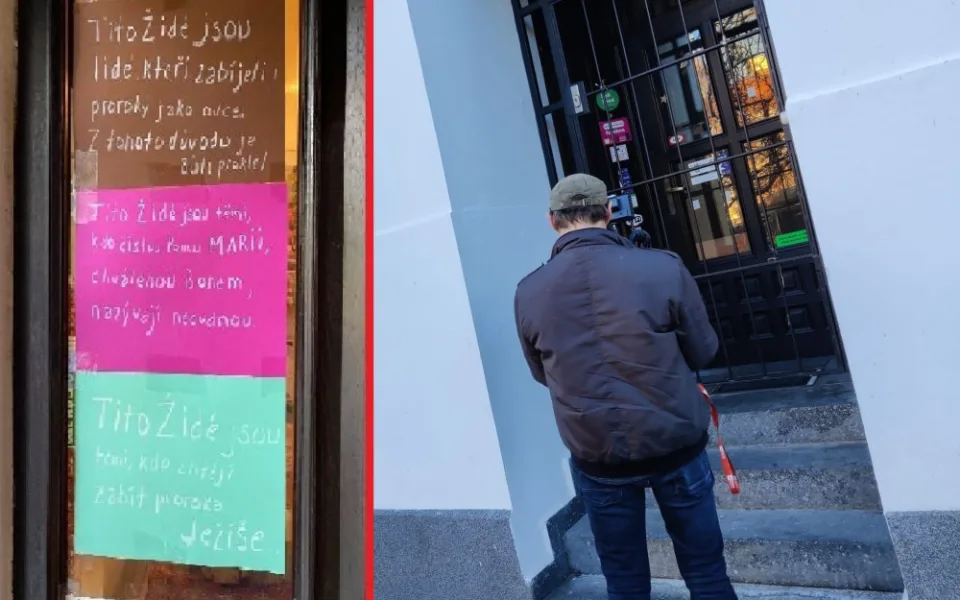 Tito Židé jsou
lidé kteří zabíjeli
proroky jako ovce.
Z tohoto důvodu je
Bůh proklel
Tito Židé jsou těmi,
kdo čistou Pannu MARII,
chválenou Bohem,
nazývají necudnou.
Tito Židé jsou
těmi, kdo chtějí
zabít proroka
Ježíše